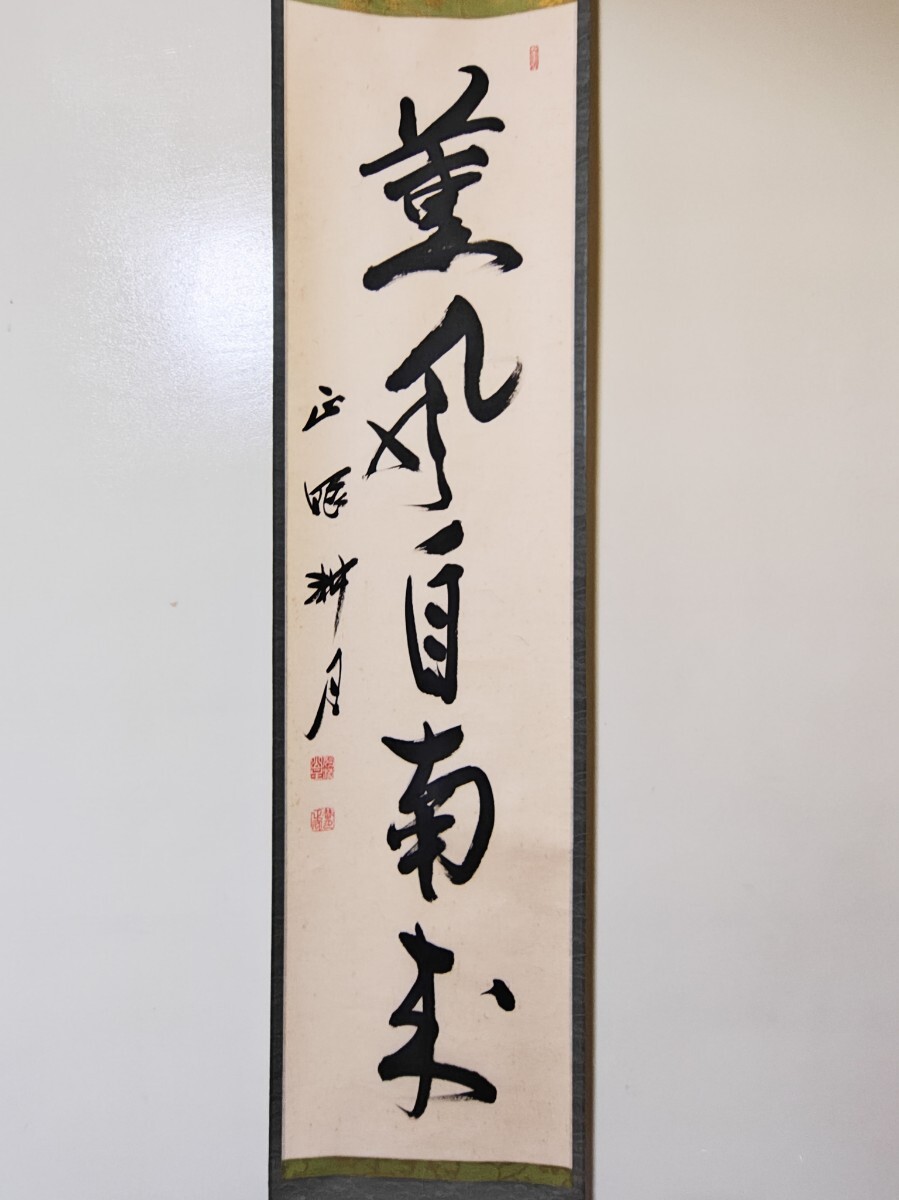 薫風自南来
正眼耕月